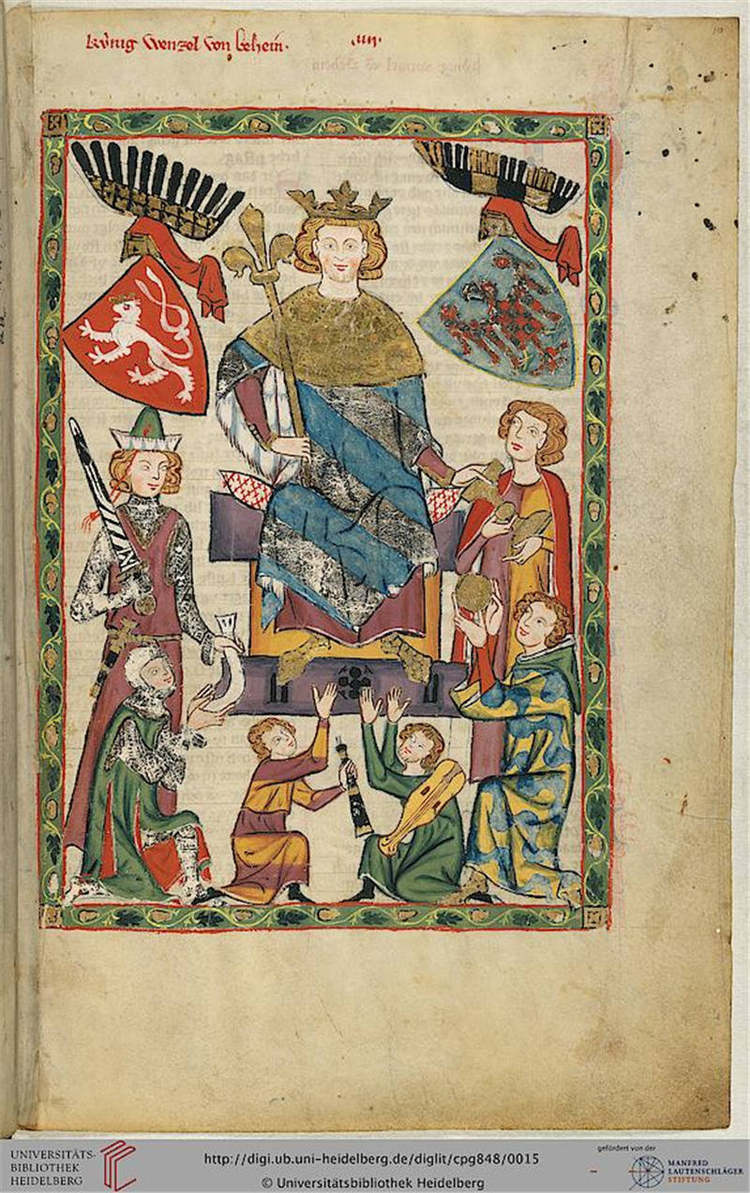 kv̍nig wenzel von behein·
·iiij·
UNIVERSITÄTS-
BIBLIOTHEK
HEIDELBERG
http://digi.ub.uni-heidelberg.de/diglit/cpg848/0015
© Universitätsbibliothek Heidelberg
gefördert von der
MANFRED
LAUTENSCHLÄGER
STIFTUNG